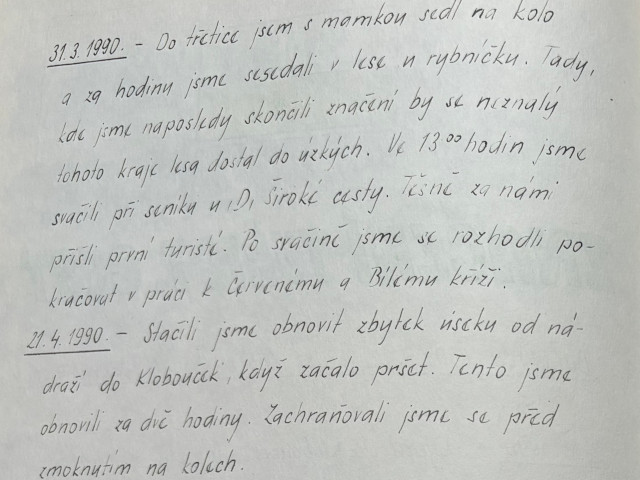 31.3.1990. - Do třetice jsem s mamkou sedl na kolo
a za hodinu jsme sesedali v lese u rybníčku. Tady,
kde jsme naposledy skončili značení by se neznalý
tohoto kraje lesa dostal do úzkých. Ve 13 00 hodin jsme
svačili při seníku u "D" široké cesty. Těsně za námi
přišli první turisté. Po svačině jsme se rozhodli po-
kračovat v práci k Červenému a Bílému kříži.
21.4.1990. - Stačili jsme obnovit zbytek úseku od ná-
draží do Klobouček, když začalo pršet. Tento jsme
obnovili za dvě hodiny. Zachraňovali jsme se před
zmoknutím na kolech.